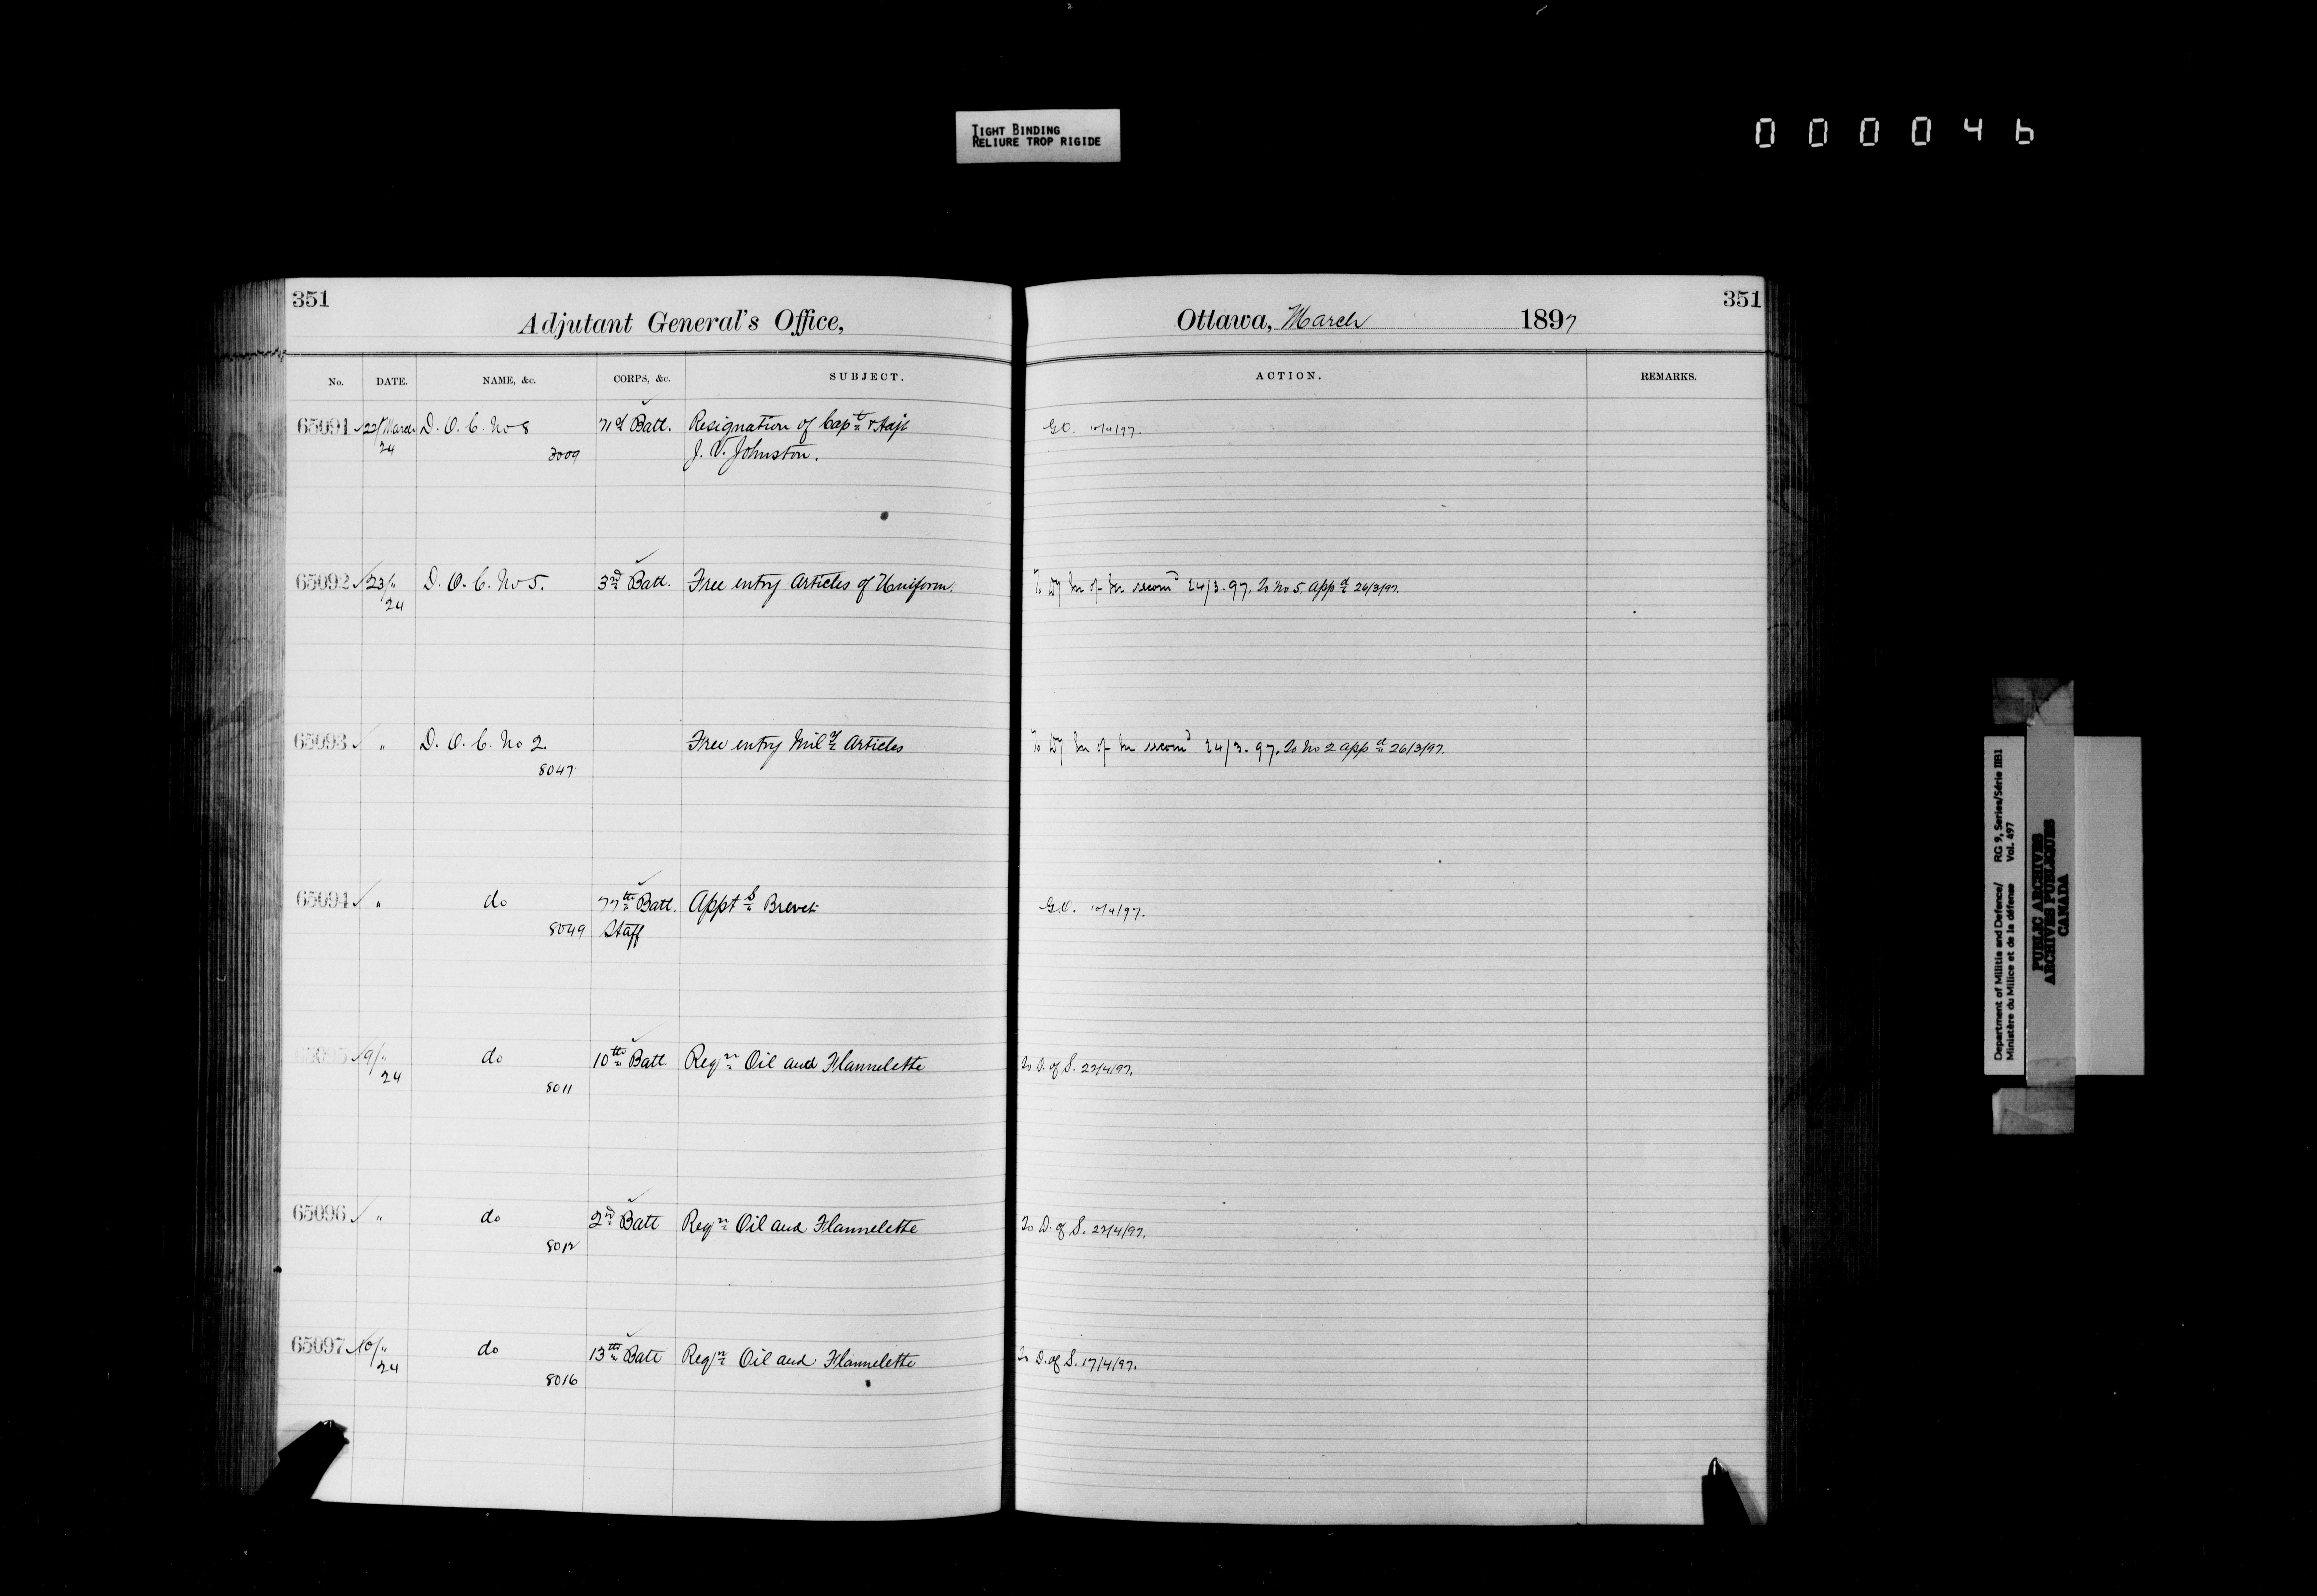 TIGHT BINDING
RELIURE TROP RIGIDE
000046
351
Adjutant General's Office,
No. DATE. NAME, &c. CORPS, &c. SUBJECT.
65091 22/March D. O. C. No 8 71st Batt. Resignation of Capt & Adjt
24 J. V. Johnston.
65092 23/" D. O. C. No 5. 3rd Batt. Free entry Articles of Uniform.
24
65093 " D. O. C. No 2. Free entry Mily Articles
8047
65094 " do 77th Batt. Appts Brevet
8049 Staff
65095 9/" do 10th Batt. Reqn Oil and Flannelette
24
8011
65096 " do 2nd Batt Reqn Oil and Flannelette
8012
65097 10/" do 13th Batt Reqn Oil and Flannelette
24
8016
351
Ottawa, March 1897
ACTION. REMARKS.
G.O. 10/4/97.
To Dy Mr of Mr recomd 24/3.97. To No 5. Appd 26/3/97.
To Dy Mr of Mr recomd 24/3.97. To No 2 appd 26/3/97.
G.O. 10/4/97.
To D. of S. 22/4/97.
To D. of S. 22/4/97.
To D. of S. 17/4/97.
Department of Militia and Defence/ RG 9, Series/Série IIB1
Ministère du Milice et de la défense Vol. 497
PUBLIC ARCHIVES
ARCHIVES PUBLIQUES
CANADA